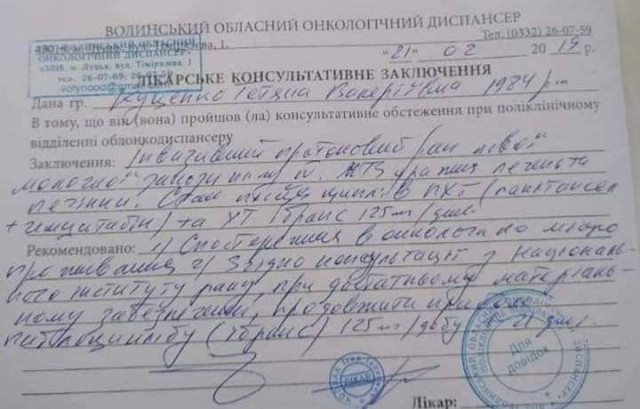 ВОЛИНСЬКИЙ ОБЛАСНИЙ ОНКОЛОГІЧНИЙ ДИСПАНСЕР
Тел. (0332) 26-07-69
ОНКОЛОГІЧНИЙ ДИСПАНСЕР
м. Луцьк, вул. Тімірязєва, 1
тел. 26-07-69, 26-
"21" 02 2019 р.
ЛІКАРСЬКЕ КОНСУЛЬТАТИВНЕ ЗАКЛЮЧЕННЯ
Дана гр. Куценко Тетяна Валеріївна 1984 р.
В тому, що він (вона) пройшов (ла) консультативне обстеження при поліклінічному
відділенні облонкодиспансеру
Заключення: Інвазивний протоковий рак лівої
молочної залози
печінки. Стан після циклів ПХТ (паклітаксел
+ гемцитабін) та (Ібранс 125 мг/
Рекомендовано: 1) Спостереження в онколога по місцю
проживання 2) Згідно консультації з Національ-
ного інституту раку, при достатньому матеріаль-
ному забезпеченні, продовжити прийом
палбоциклібу (Ібранс) 125 мг/добу 21
Для
довідок
ЛІКАР
Лікар: